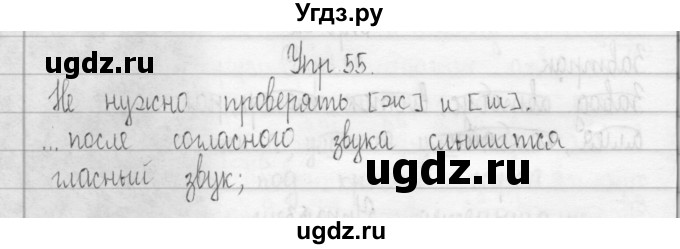 Угдз.ру
ugdz.ru
Упр. 55.
Не нужно проверять [ж] и [ш].
...после согласного звука слышится
гласный звук;
ugdz.ru
ugdz.ru
ugdz.ru